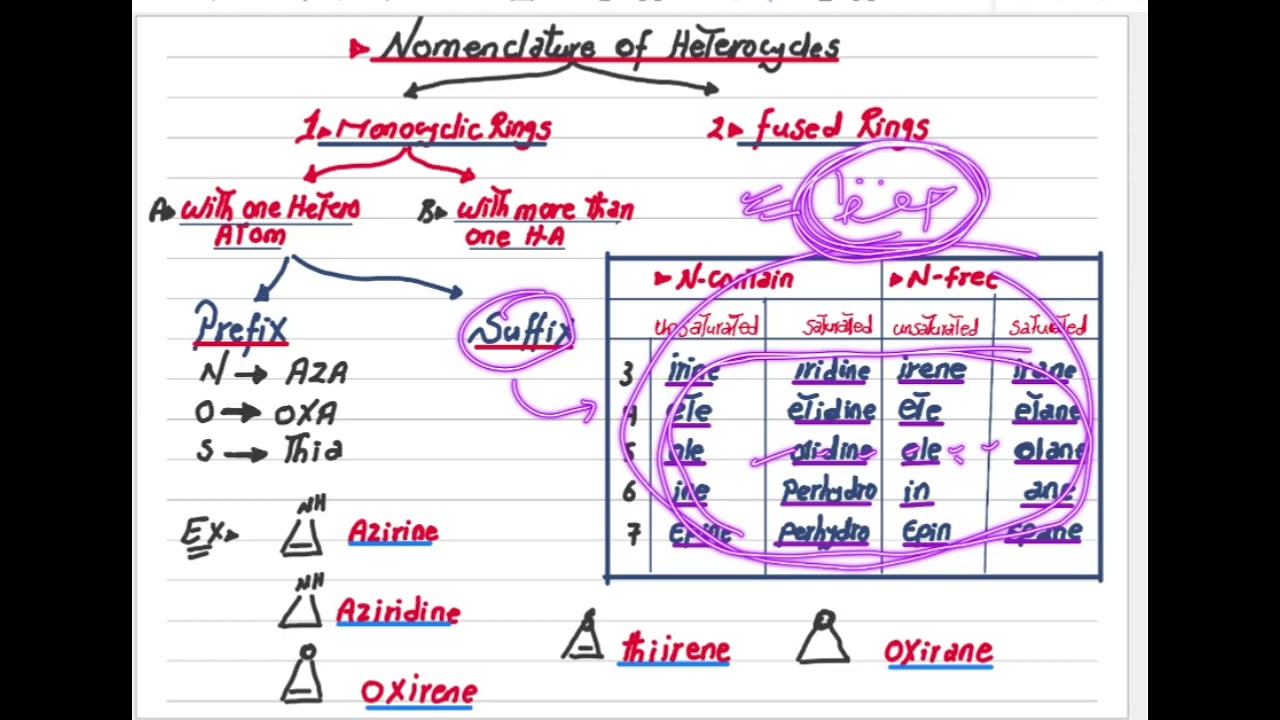 Nomenclature of Heterocycles
1 Monocyclic Rings
2 fused Rings
A with one Hetero Atom
B with more than one H-A
Prefix
N → AZA
O → OXA
S → Thia
Suffix
N-contain N-free
unsaturated saturated unsaturated saturated
3 irine iridine irene irane
4 ete etidine ete etane
5 ole olidine ole olane
6 ine Perhydro in ane
7 Epine Perhydro Epin epane
Ex
NH Azirine
NH Aziridine
O Oxirene
S thiirene
O Oxirane